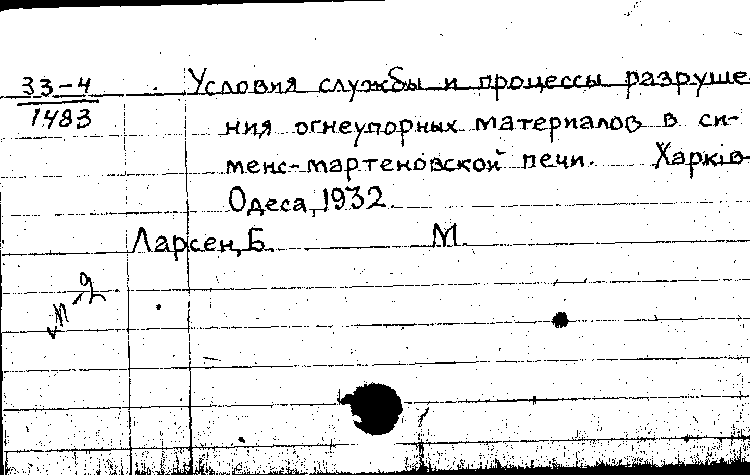 33-4 Условия службы и процессы разруше
1483 ния огнеупорных материалов в си-
менс-мартеновской печи. Харків-
Одеса, 1932.
Ларсен, Б. М.